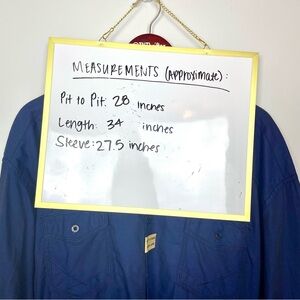 MEASUREMENTS (APPROXIMATE):
Pit to Pit: 28 inches
Length: 34 inches
Sleeve: 27.5 inches